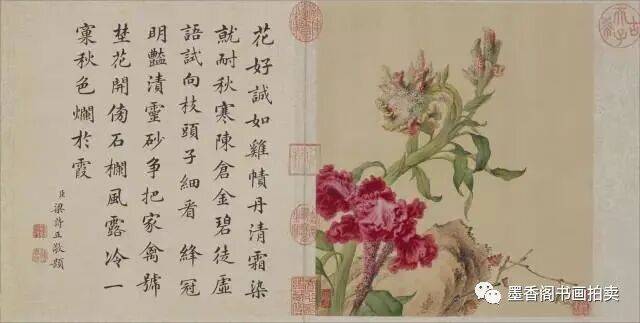 花好誠如雞幘丹清霜染
就耐秋寒陳倉金碧徒虛
語試向枝頭子細看 絳冠
明豔漬靈砂争把家禽號
埜花開傍石欄風露冷一
窠秋色爛於霞
臣梁詩正敬題
墨香阁书画拍卖